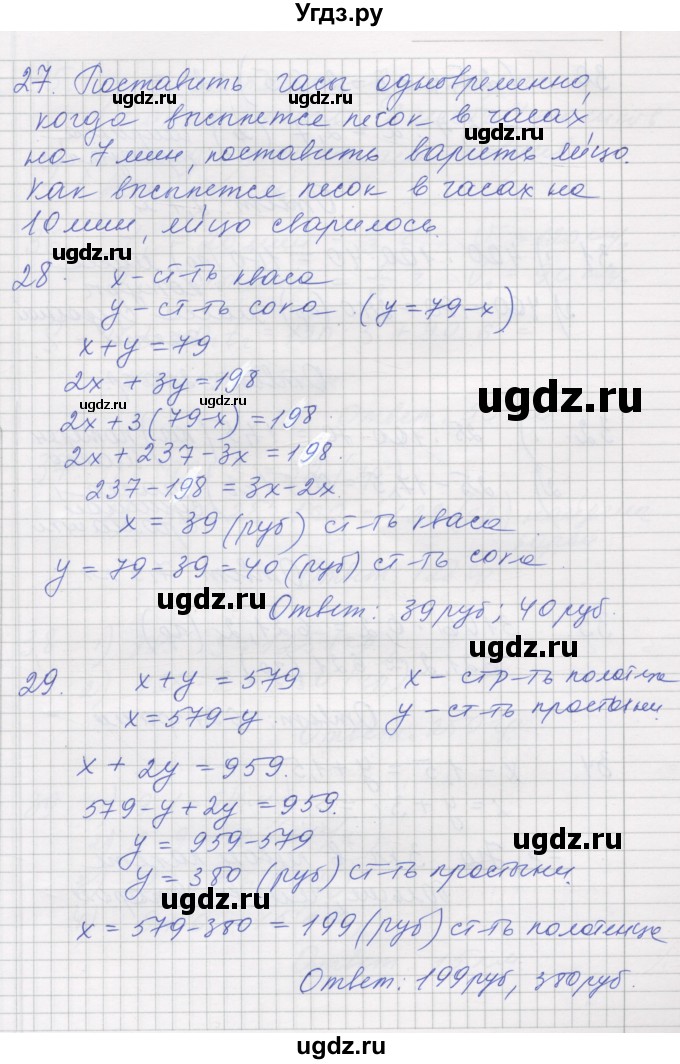 Угдз.ру
27. Поставить часы одновременно,
когда высыпется песок в часах
на 7 мин, поставить варить яйцо.
Как высыпется песок в часах на
10 мин, яйцо сварилось.
28. x - ст-ть кваса
y - ст-ть сока (y = 79 - x)
x + y = 79
2x + 3y = 198
2x + 3(79 - x) = 198
2x + 237 - 3x = 198.
237 - 198 = 3x - 2x
x = 39 (руб) ст-ть кваса
y = 79 - 39 = 40 (руб) ст-ть сока
Ответ: 39 руб; 40 руб.
29. x + y = 579 x - стр-ть полотенца
x = 579 - y y - ст-ть простыни
x + 2y = 959.
579 - y + 2y = 959.
y = 959 - 579
y = 380 (руб) ст-ть простыни.
x = 579 - 380 = 199 (руб) ст-ть полотенца
Ответ: 199 руб, 380 руб.
ugdz.ru
ugdz.ru
ugdz.ru
ugdz.ru
ugdz.ru
ugdz.ru
ugdz.ru
ugdz.ru
ugdz.ru
ugdz.ru
ugdz.ru
ugdz.ru